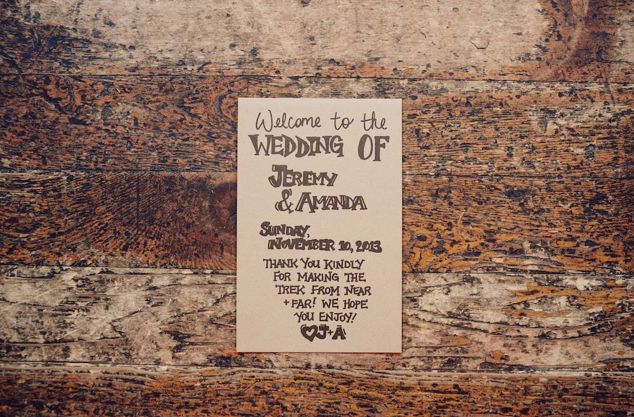 Welcome to the
WEDDING OF
JEREMY
& AMANDA
SUNDAY,
NOVEMBER 10, 2013
THANK YOU KINDLY
FOR MAKING THE
TREK FROM NEAR
+ FAR! WE HOPE
YOU ENJOY!
♡J+A